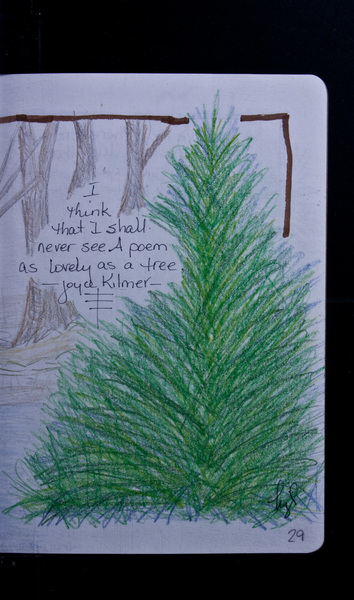 I
think
that I shall
never see A poem
as lovely as a tree
—Joyce Kilmer—
29